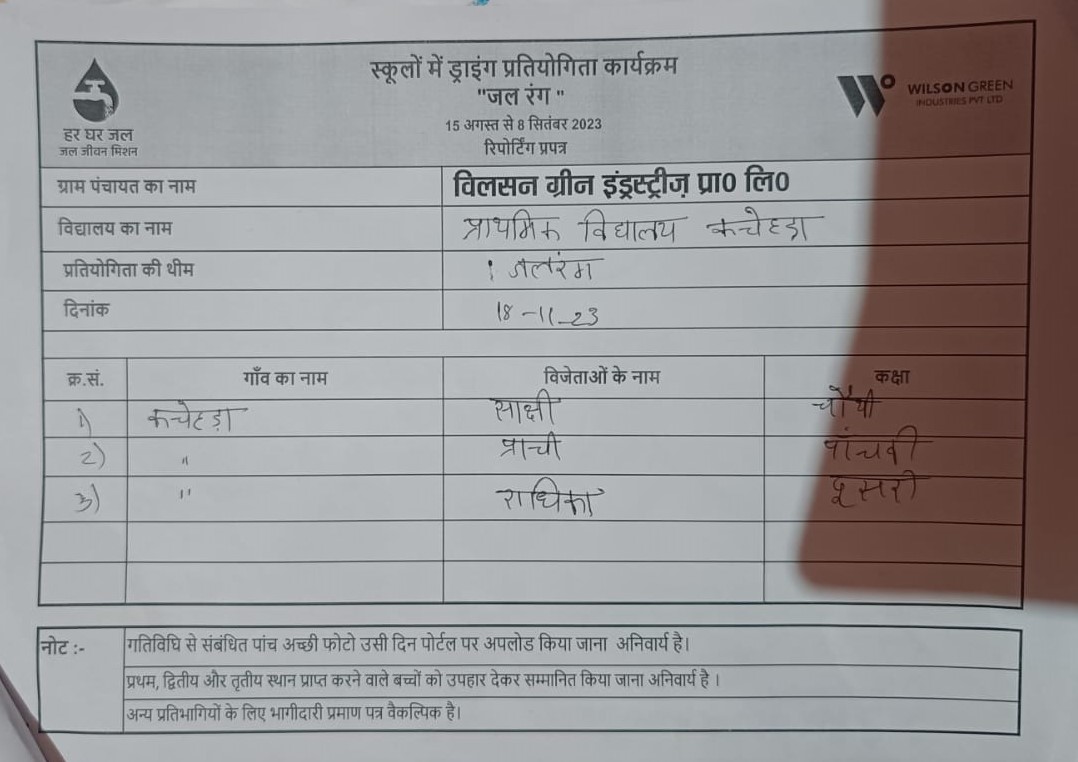 स्कूलों में ड्राइंग प्रतियोगिता कार्यक्रम
"जल रंग "
15 अगस्त से 8 सितंबर 2023
रिपोर्टिंग प्रपत्र
हर घर जल
जल जीवन मिशन
WILSON GREEN
INDUSTRIES PVT LTD
ग्राम पंचायत का नाम विलसन ग्रीन इंड्रस्ट्रीज़ प्रा0 लि0
विद्यालय का नाम प्राथमिक विद्यालय कचेहड़ा
प्रतियोगिता की थीम जलरंग
दिनांक 18-11-23
क्र.सं. गाँव का नाम विजेताओं के नाम कक्षा
1) कचेहड़ा साक्षी चौथी
2) " प्राची पांचवी
3) " राधिका दूसरी
नोट :- गतिविधि से संबंधित पांच अच्छी फोटो उसी दिन पोर्टल पर अपलोड किया जाना अनिवार्य है।
प्रथम, द्वितीय और तृतीय स्थान प्राप्त करने वाले बच्चों को उपहार देकर सम्मानित किया जाना अनिवार्य है ।
अन्य प्रतिभागियों के लिए भागीदारी प्रमाण पत्र वैकल्पिक है।